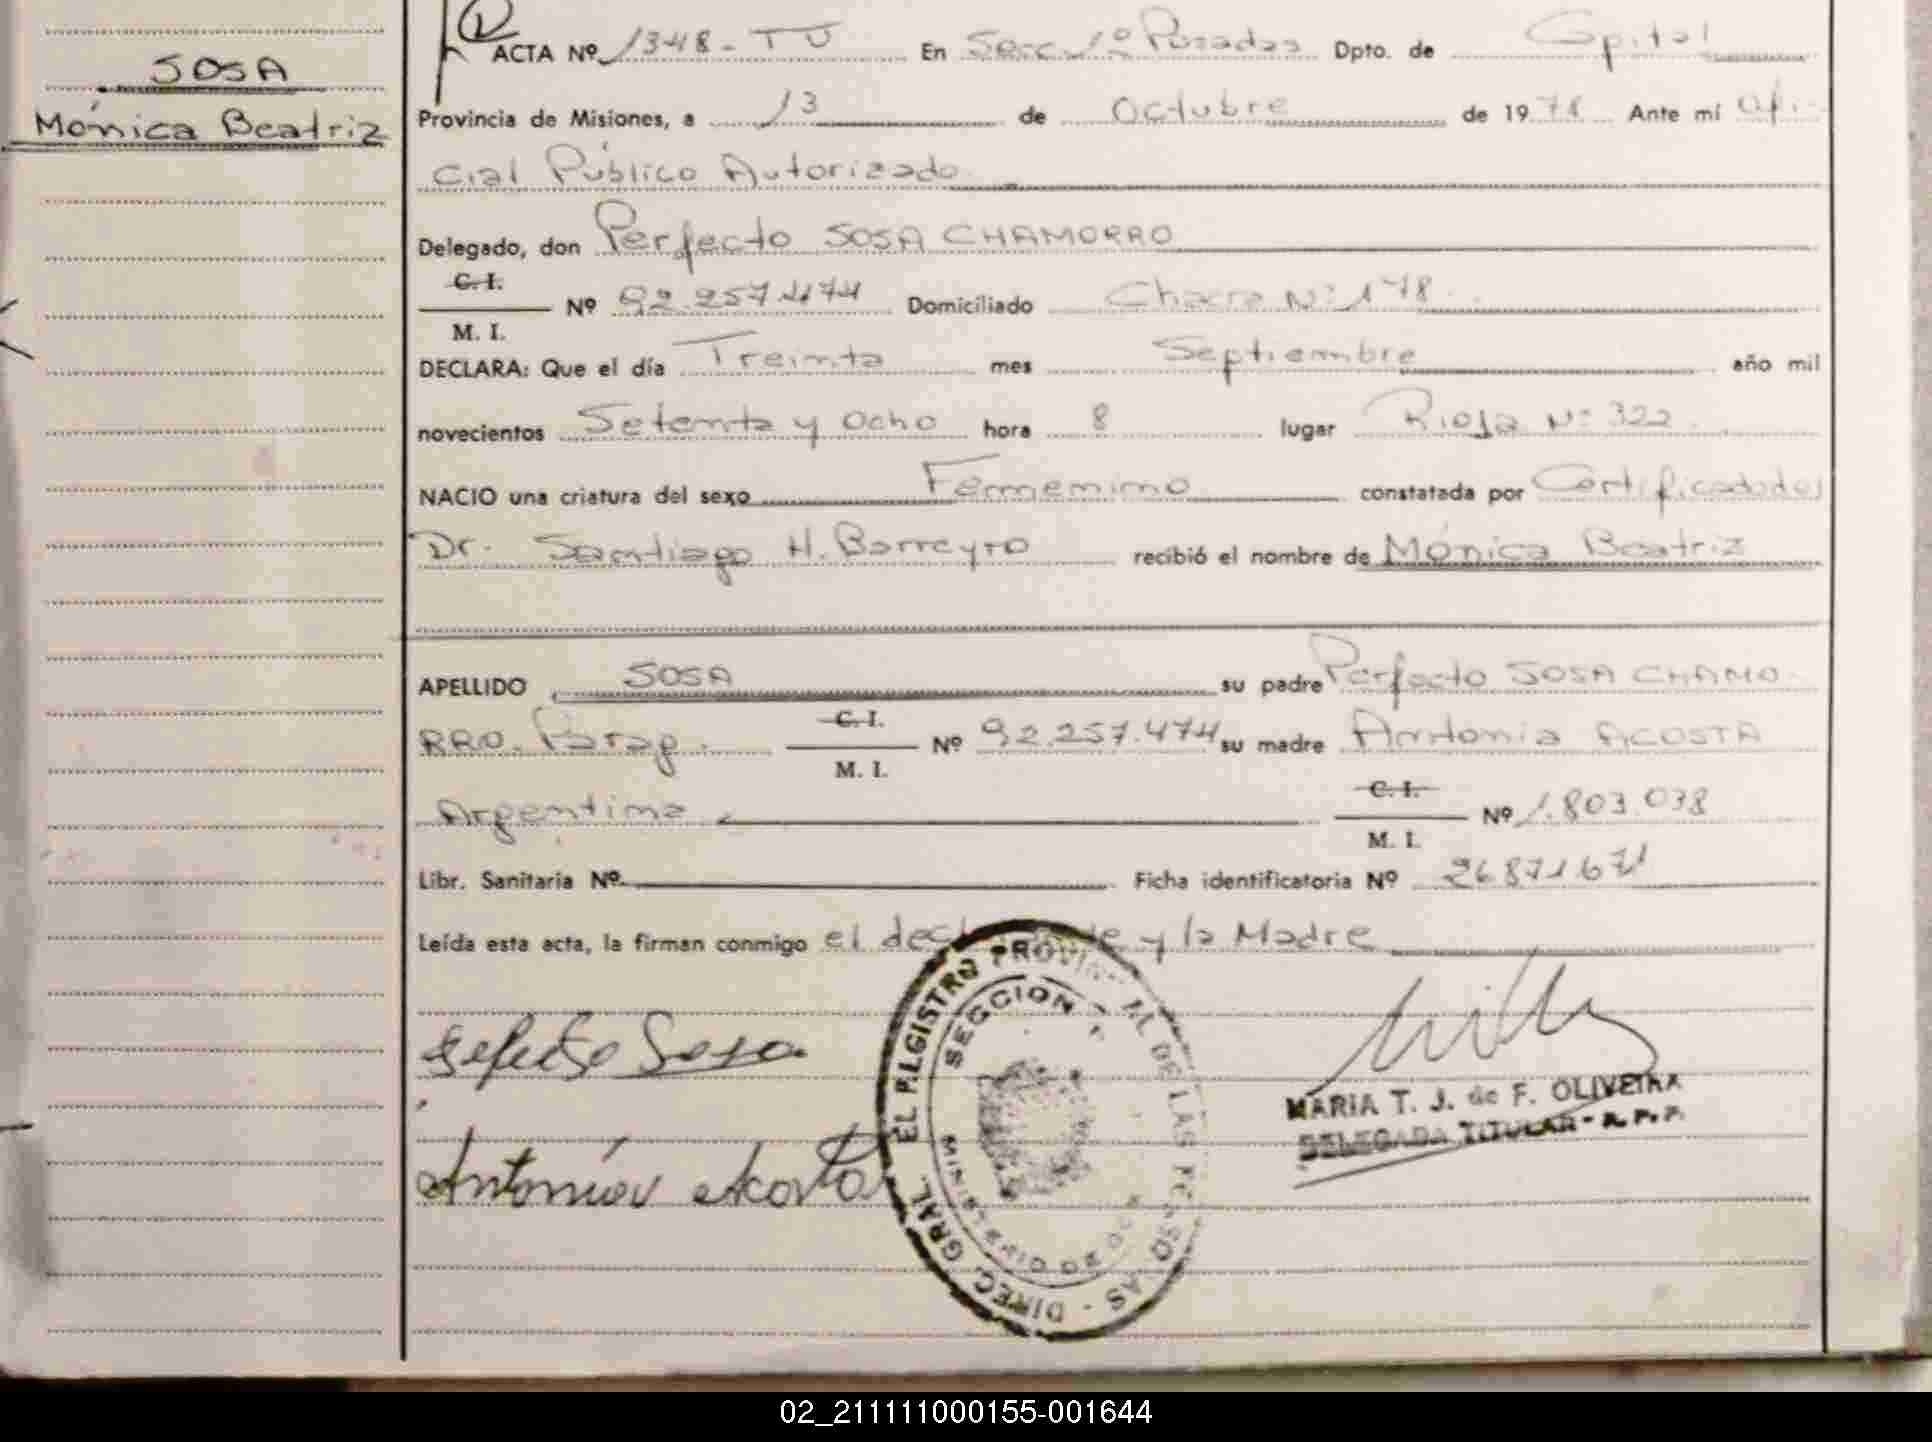 SOSA
Mónica Beatriz
ACTA Nº 1348 - TU En Secc. 1º Posadas Dpto. de Capital
Provincia de Misiones, a 13 de Octubre de 1978 Ante mí Ofi-
cial Público Autorizado
Delegado, don Perfecto SOSA CHAMORRO
C. I.
Nº 92.257.474 Domiciliado Chacra Nº 178
M. I.
DECLARA: Que el día Treinta mes Septiembre año mil
novecientos Setenta y Ocho hora 8 lugar Rioja Nº 322
NACIO una criatura del sexo Femenino constatada por Certificado del
Dr. Santiago H. Barreyro recibió el nombre de Mónica Beatriz
APELLIDO SOSA su padre Perfecto SOSA CHAMO-
RRO. Parag. C. I. Nº 92.257.474 su madre Antonia ACOSTA
M. I.
Argentina C. I. Nº 1.803.038
M. I.
Libr. Sanitaria Nº Ficha identificatoria Nº 26.871.671
Leída esta acta, la firman conmigo el declarante y la Madre
Sosa
Antonia Acosta
DIREC. GRAL. DEL REGISTRO PROVINCIAL DE LAS PERSONAS
SECCION 1ª
MARIA T. J. de F. OLIVEIRA
DELEGADA TITULAR - R. P. P.
02_211111000155-001644